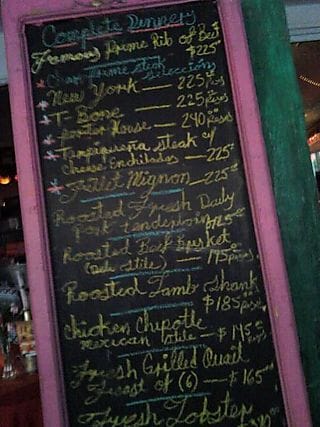 Complete Dinners
Famous Prime Rib of Beef
$225
Char Prime Steak
Selections
New York — 225 Pesos
T-Bone — 225 Pesos
Porter House — 240 Pesos
Tampiqueña Steak c/
Cheese Enchiladas — 225
Filet Mignon — 225
Roasted Fresh Daily
Pork tenderloin
Roasted Beef Brisket
(Deli Stile) — 175 Pesos
Roasted Lamb Shank
$185 Pesos
Chicken Chipotle
Mexican Stile — $145
Fresh Grilled Quail
Feast of (6) — $165
Fresh Lobster